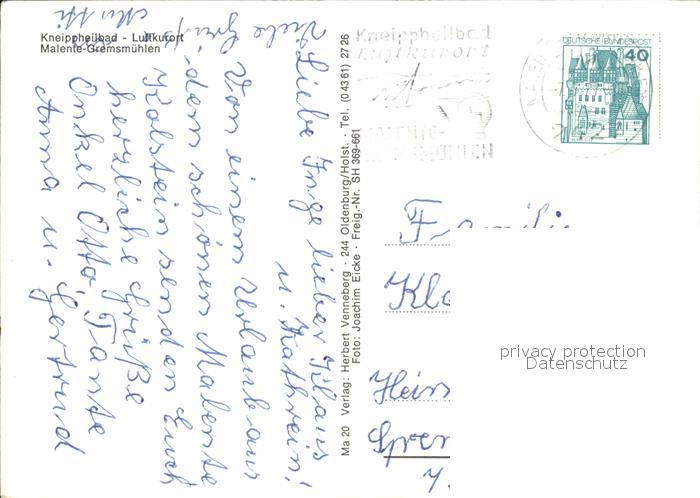 Kneippheilbad - Luftkurort
Malente-Gremsmühlen
Liebe Inge lieber Klaus
u. Kathrein!
Von einem Urlaub aus
dem schönen Malente
Holstein senden Euch
herzliche Grüße
Onkel Otto, Tante
Anna u. Gertrud
Viele
Ma 20 Verlag: Herbert Venneberg · 244 Oldenburg/Holst. · Tel. (0 43 61) 27 26
Foto: Joachim Eicke · Freig.-Nr. SH 369-661
Kneippheilbad
Luftkurort
MALENTE-
GREMSMÜHLEN
DEUTSCHE BUNDESPOST
40
Familie
Kla
Heins
Grem
privacy protection
Datenschutz